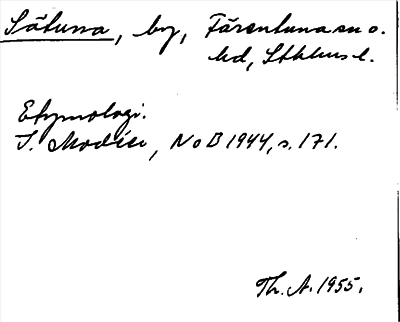 Såtuna, by, Färentuna sn o.
hd, Sthlms l.
Etymologi.
I. Modéer, NoB 1944, s. 171.
Th. A. 1955.